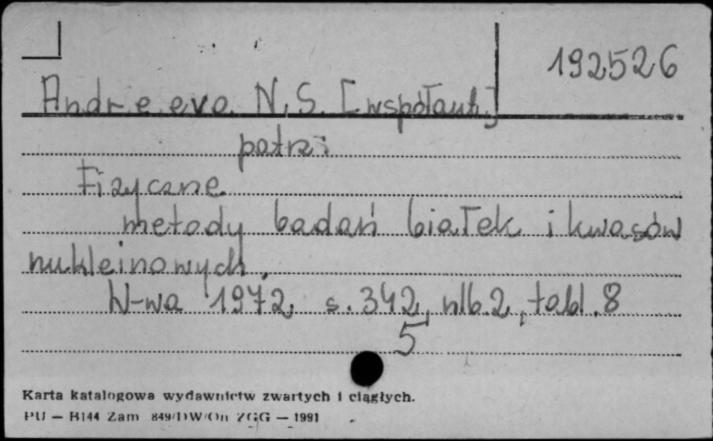 192526
Andreeva N.S. [współaut.]
patrz:
Fizyczne
metody badań białek i kwasów
nukleinowych.
W-wa 1972, s. 342, nlb. 2, tabl. 8
5
Karta katalogowa wydawnictw zwartych i ciągłych.
PU — B144 Zam 849/DW/On ZGG — 1991